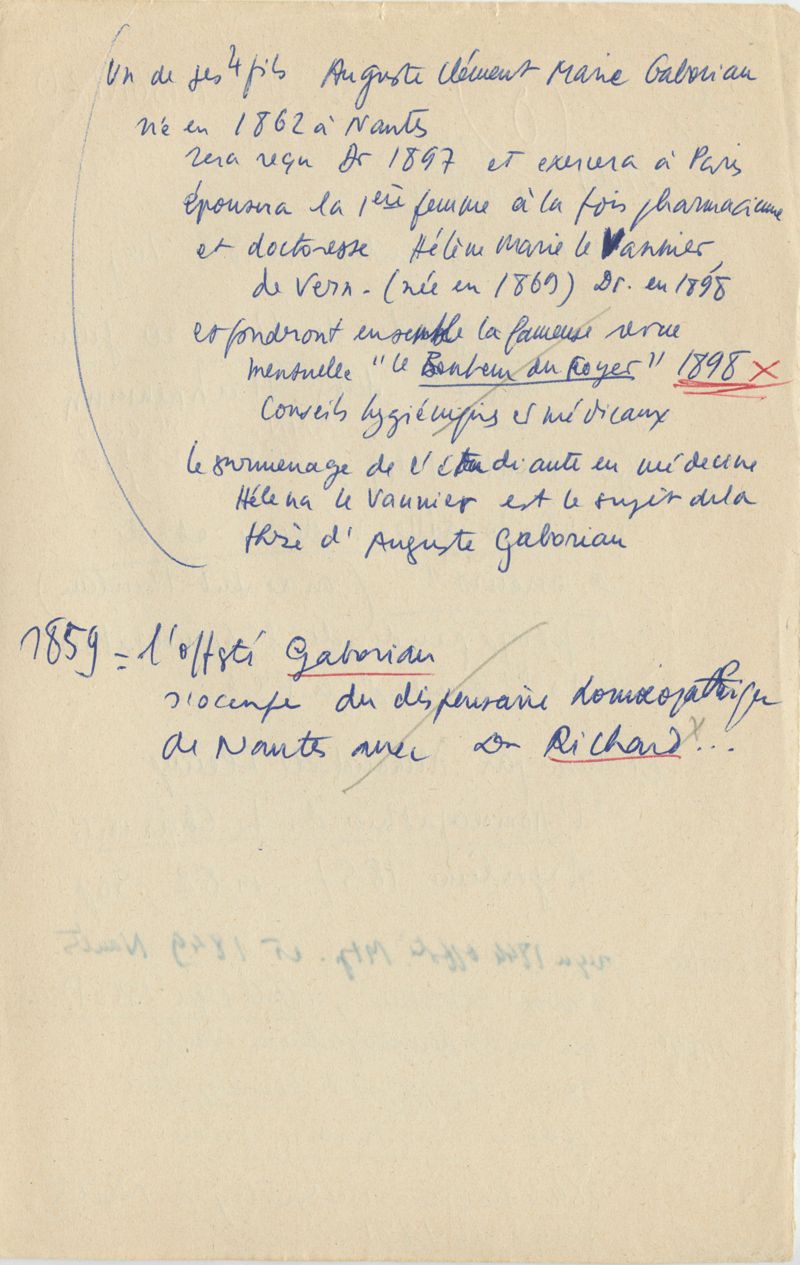 Un de ses 4 fils Auguste Clément Marie Gaboriau
né en 1862 à Nantes
sera reçu Dr 1897 et exercera à Paris
épousera la 1ère femme à la fois pharmacienne
et doctoresse Hélène Marie le Vannier
de Vern - (née en 1869) Dr. en 1898
et fonderont ensemble la fameuse revue
mensuelle "le Bonheur du Foyer" 1898 x
Conseils hygiéniques et médicaux
le surmenage de l'étudiante en médecine
Héléna le Vannier est le sujet de la
thèse d'Auguste Gaboriau
1859 = l'offsté Gaboriau
s'occupe du dispensaire homéopathique
de Nantes avec Dr Richard x ...